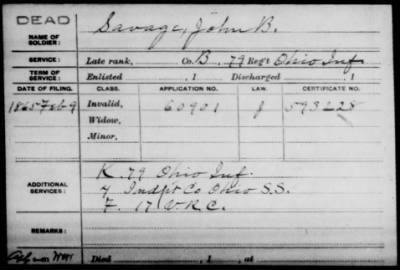 DEAD
NAME OF SOLDIER: Savage, John B.
SERVICE: Late rank, Co. B, 79 Reg't Ohio Inf.
TERM OF SERVICE: Enlisted , 1 Discharged , 1
DATE OF FILING. CLASS. APPLICATION NO. LAW. CERTIFICATE NO.
1865 Feb 9 Invalid, 60901 593228
Widow,
Minor,
ADDITIONAL SERVICES: K. 79 Ohio Inf.
4 Indpt Co Ohio S.S.
F. 17 V.R.C.
REMARKS:
Died , 1 , at